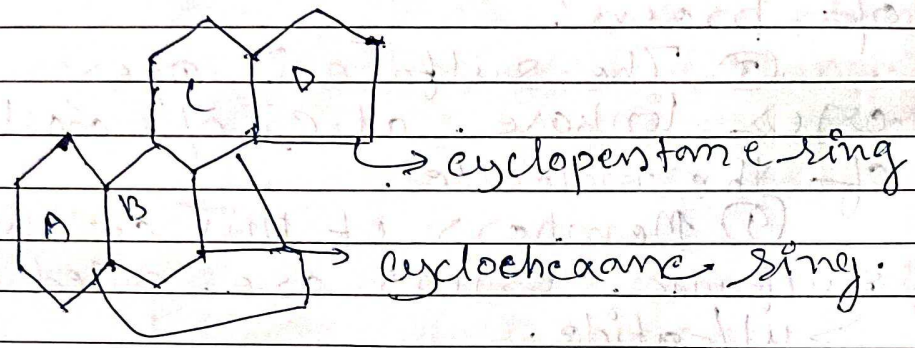 C D
cyclopentane ring
A B
cyclohexane ring.